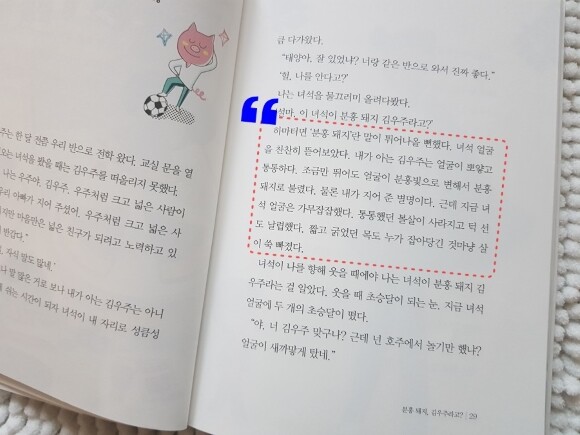 주는 한 달 전쯤 우리 반으로 전학 왔다. 교실 문을 열
오는 녀석을 봤을 때는 김우주를 떠올리지 못했다.
나는 우주야. 김우주. 우주처럼 크고 넓은 사람이
우리 아빠가 지어 주셨어. 우주처럼 크고 넓은 사
지만 마음만은 넓은 친구가 되려고 노력하고 있
반갑다."
자식 말도 많네."
말 많은 거로 보나 내가 아는 김우주는 아니
쉬는 시간이 되자 녀석이 내 자리로 성큼성
큼 다가왔다.
"태양아, 잘 있었냐? 너랑 같은 반으로 와서 진짜 좋다."
"헐, 나를 안다고?"
나는 녀석을 물끄러미 올려다봤다.
설마, 이 녀석이 분홍 돼지 김우주라고?
하마터면 '분홍 돼지'란 말이 튀어나올 뻔했다. 녀석 얼굴
을 찬찬히 뜯어보았다. 내가 아는 김우주는 얼굴이 뽀얗고
통통하다. 조금만 뛰어도 얼굴이 분홍빛으로 변해서 분홍
돼지로 불렸다. 물론 내가 지어 준 별명이다. 근데 지금 녀
석 얼굴은 가무잡잡했다. 통통했던 볼살이 사라지고 턱 선
도 날렵했다. 짧고 굵었던 목도 누가 잡아당긴 것마냥 삼
이 쑥 빠졌다.
녀석이 나를 향해 웃을 때에야 나는 녀석이 분홍 돼지 김
우주라는 걸 알았다. 웃을 때 초승달이 되는 눈, 지금 녀석
얼굴에 두 개의 초승달이 떴다.
"야, 너 김우주 맞구나? 근데 넌 호주에서 놀기만 했냐?
얼굴이 새까맣게 탔네."
분홍 돼지, 김우주라고? | 29